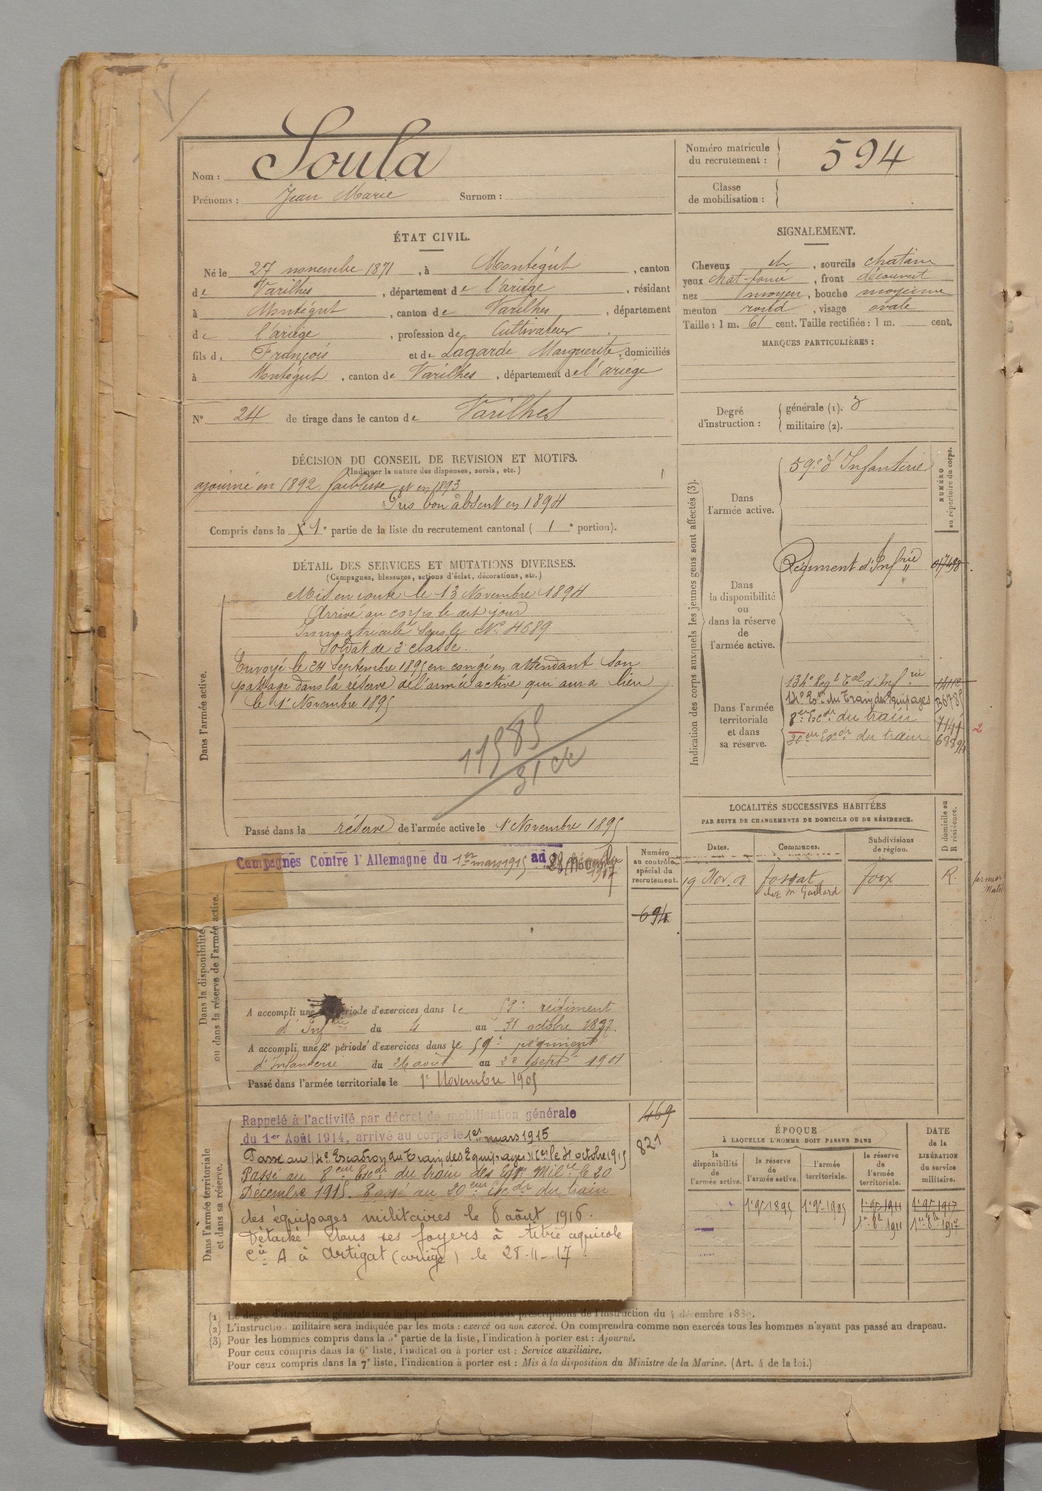 Nom : Soula
Prénoms : Jean Marie Surnom :
Numéro matricule du recrutement : 594
Classe de mobilisation :
ÉTAT CIVIL.
Né le 27 novembre 1871, à Montégut, canton
de Varilhes, département de l'ariège, résidant
à Montégut, canton de Varilhes, département
de l'ariège, profession de Cultivateur
fils de François et de Lagarde Marguerite, domiciliés
à Montégut, canton de Varilhes, département de l'ariège
N° 24 de tirage dans le canton de Varilhes
SIGNALEMENT.
Cheveux ch, sourcils chatain
yeux chat foncé, front découvert
nez moyen, bouche moyenne
menton rond, visage ovale
Taille : 1 m. 61 cent. Taille rectifiée : 1 m. cent.
MARQUES PARTICULIÈRES :
Degré d'instruction : générale (1). 3
militaire (2).
DÉCISION DU CONSEIL DE REVISION ET MOTIFS.
(Indiquer la nature des dispenses, sursis, etc.)
ajourné en 1892 faiblesse et en 1893
Pris bon absent en 1894
Compris dans la 1e partie de la liste du recrutement cantonal ( 1 e portion).
DÉTAIL DES SERVICES ET MUTATIONS DIVERSES.
(Campagnes, blessures, actions d'éclat, décorations, etc.)
Dans l'armée active.
Mis en route le 13 Novembre 1894
Arrivé au corps le dit jour
Immatriculé sous le No 4689
Soldat de 2 classe.
Envoyé le 24 Septembre 1895 en congé en attendant son
passage dans la réserve de l'armée active qui aura lieu
le 1r Novembre 1895
Passé dans la réserve de l'armée active le 1 Novembre 1895
Indication des corps auxquels les jeunes gens sont affectés (3).
NUMÉRO au répertoire du corps.
Dans l'armée active.
59e d'Infanterie
Dans la disponibilité ou dans la réserve de l'armée active.
Régiment d'Infrie
Dans l'armée territoriale et dans sa réserve.
134e Regt Tal d'Infrie
14e Eon du Train des Equipages
8eme Escdr du train 7141
20eme Escdr du train
2
LOCALITÉS SUCCESSIVES HABITÉES
PAR SUITE DE CHANGEMENTS DE DOMICILE OU DE RÉSIDENCE.
Dates. Communes. Subdivisions de région. D domicile ou R résidence.
19 Nov. fossat foix R
chez M Gaillard
Dans la disponibilité ou dans la réserve de l'armée active.
Campagnes Contre l'Allemagne du 1er mars 1915 au
1917
Numéro au contrôle spécial du recrutement.
694
A accompli une période d'exercices dans le 59e régiment
d'Infrie du 4 au 31 octobre 1897
A accompli une 2e période d'exercices dans le 59e régiment
d'Infanterie du 26 août au 20 Septe 1901
Passé dans l'armée territoriale le 1r Novembre 1905
Dans l'armée territoriale et dans sa réserve.
469
821
Rappelé à l'activité par décret de mobilisation générale
du 1er Août 1914, arrivé au corps le 1er mars 1915
Passé au 14e Escadron du Train des Equipages Mres le 21 octobre 1915
Passé au 8eme Escdr du train des Eqes Milres le 20
Décembre 1915. Passé au 20eme Escdr du train
des équipages militaires le 6 août 1916.
Détaché dans ses foyers à titre agricole
Cie A à Artigat (ariège) le 28-11-17
ÉPOQUE
À LAQUELLE L'HOMME DOIT PASSER DANS
la disponibilité de l'armée active. la réserve de l'armée active. l'armée territoriale. la réserve de l'armée territoriale.
DATE de la LIBÉRATION du service militaire.
1r 9r 1895 1r 9r 1905 1r 9r 1911 1r 9r 1917
(1) Le degré d'instruction générale sera indiqué conformément aux prescriptions de l'instruction du 4 décembre 1889.
(2) L'instruction militaire sera indiquée par les mots : exercé ou non exercé. On comprendra comme non exercés tous les hommes n'ayant pas passé au drapeau.
(3) Pour les hommes compris dans la 5e partie de la liste, l'indication à porter est : Ajourné.
Pour ceux compris dans la 6e liste, l'indication à porter est : Service auxiliaire.
Pour ceux compris dans la 7e liste, l'indication à porter est : Mis à la disposition du Ministre de la Marine. (Art. 4 de la loi.)